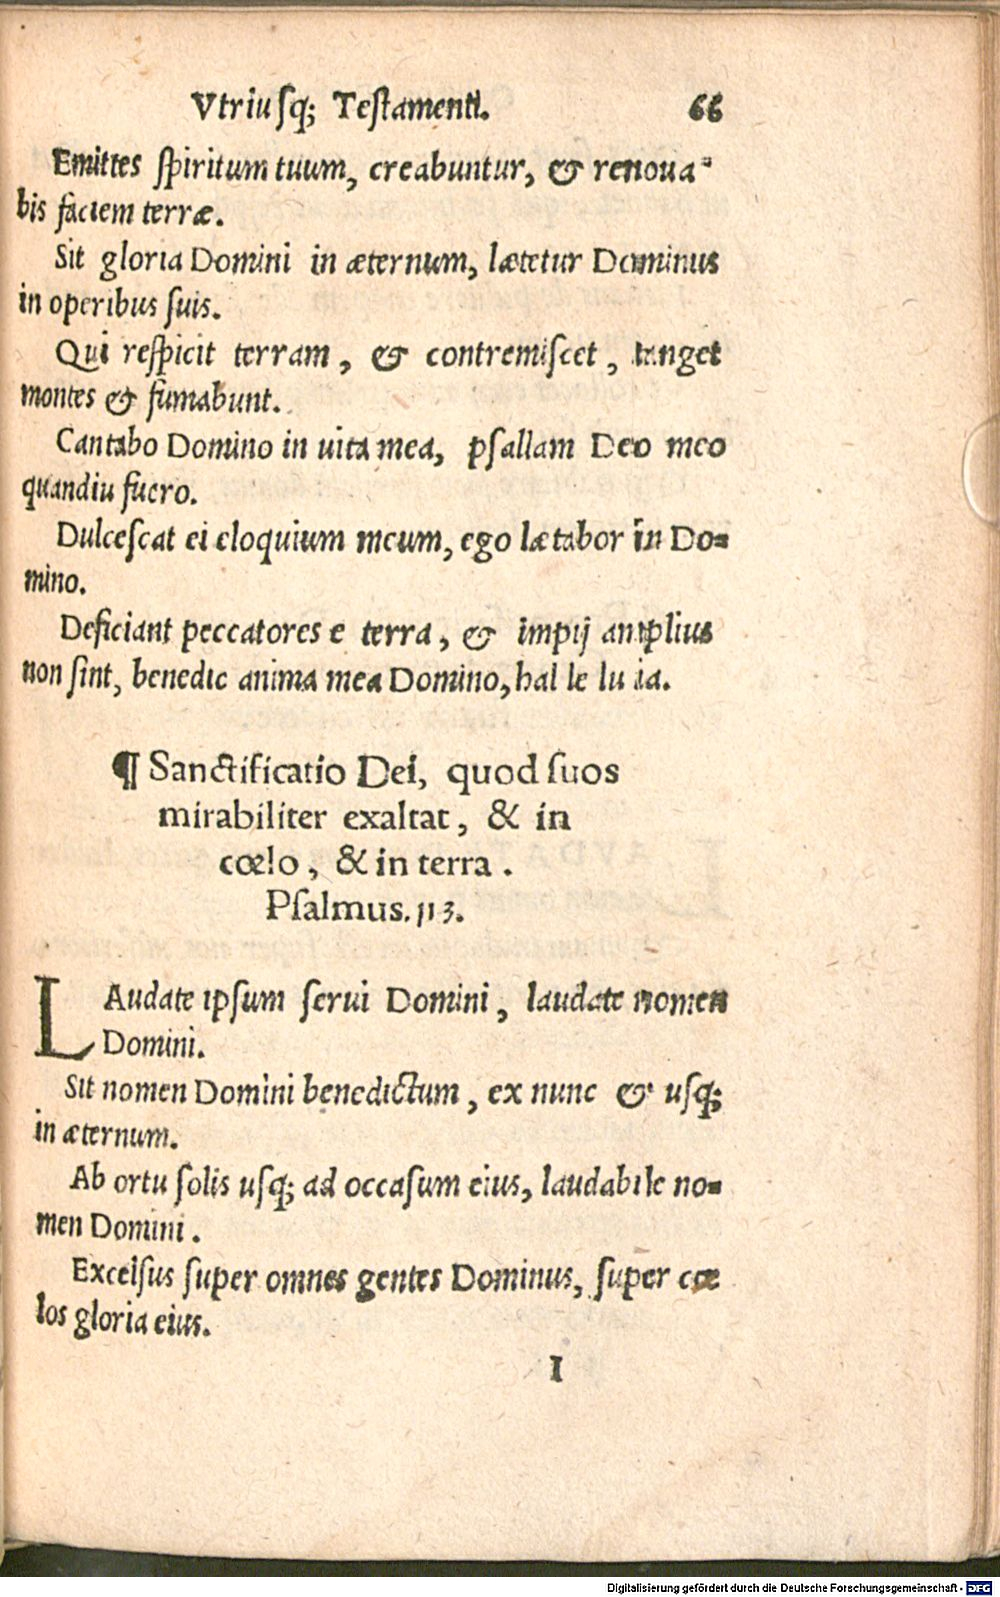 Vtriusq; Testamenti. 66
Emittes spiritum tuum, creabuntur, & renoua-
bis faciem terræ.
Sit gloria Domini in æternum, lætetur Dominus
in operibus suis.
Qui respicit terram, & contremiscet, tanget
montes & fumabunt.
Cantabo Domino in uita mea, psallam Deo meo
quandiu fuero.
Dulcescat ei eloquium meum, ego lætabor in Do-
mino.
Deficiant peccatores e terra, & impij amplius
non sint, benedic anima mea Domino, hal le lu ia.
¶ Sanctificatio Dei, quod suos
mirabiliter exaltat, & in
cœlo, & in terra.
Psalmus. 113.
LAudate ipsum serui Domini, laudate nomen
Domini.
Sit nomen Domini benedictum, ex nunc & usq;
in æternum.
Ab ortu solis usq; ad occasum eius, laudabile no-
men Domini.
Excelsus super omnes gentes Dominus, super cœ
los gloria eius.
I
Digitalisierung gefördert durch die Deutsche Forschungsgemeinschaft - DFG